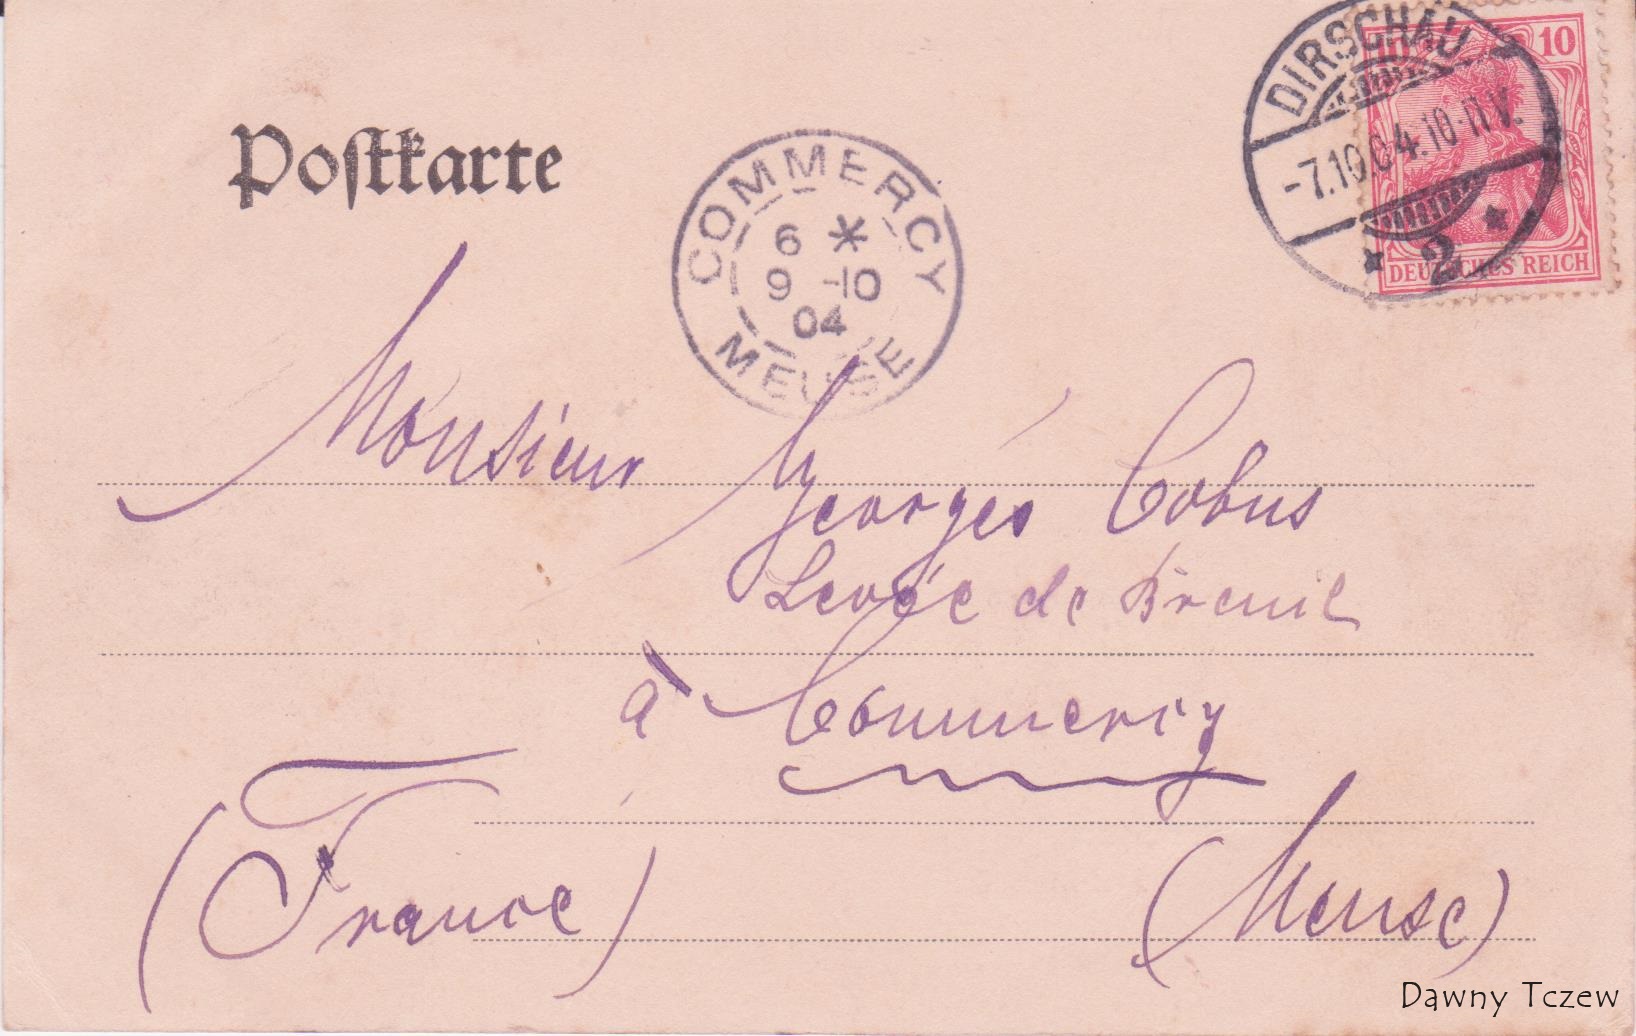 Postkarte
COMMERCY
6 *
9 -10
04
MEUSE
DIRSCHAU
-7.10.04.10-11V.
* 2 *
10
DEUTSCHES REICH
Monsieur Georges Cobus
Levée de Breuil
à Commercy
(France) (Meuse)
Dawny Tczew